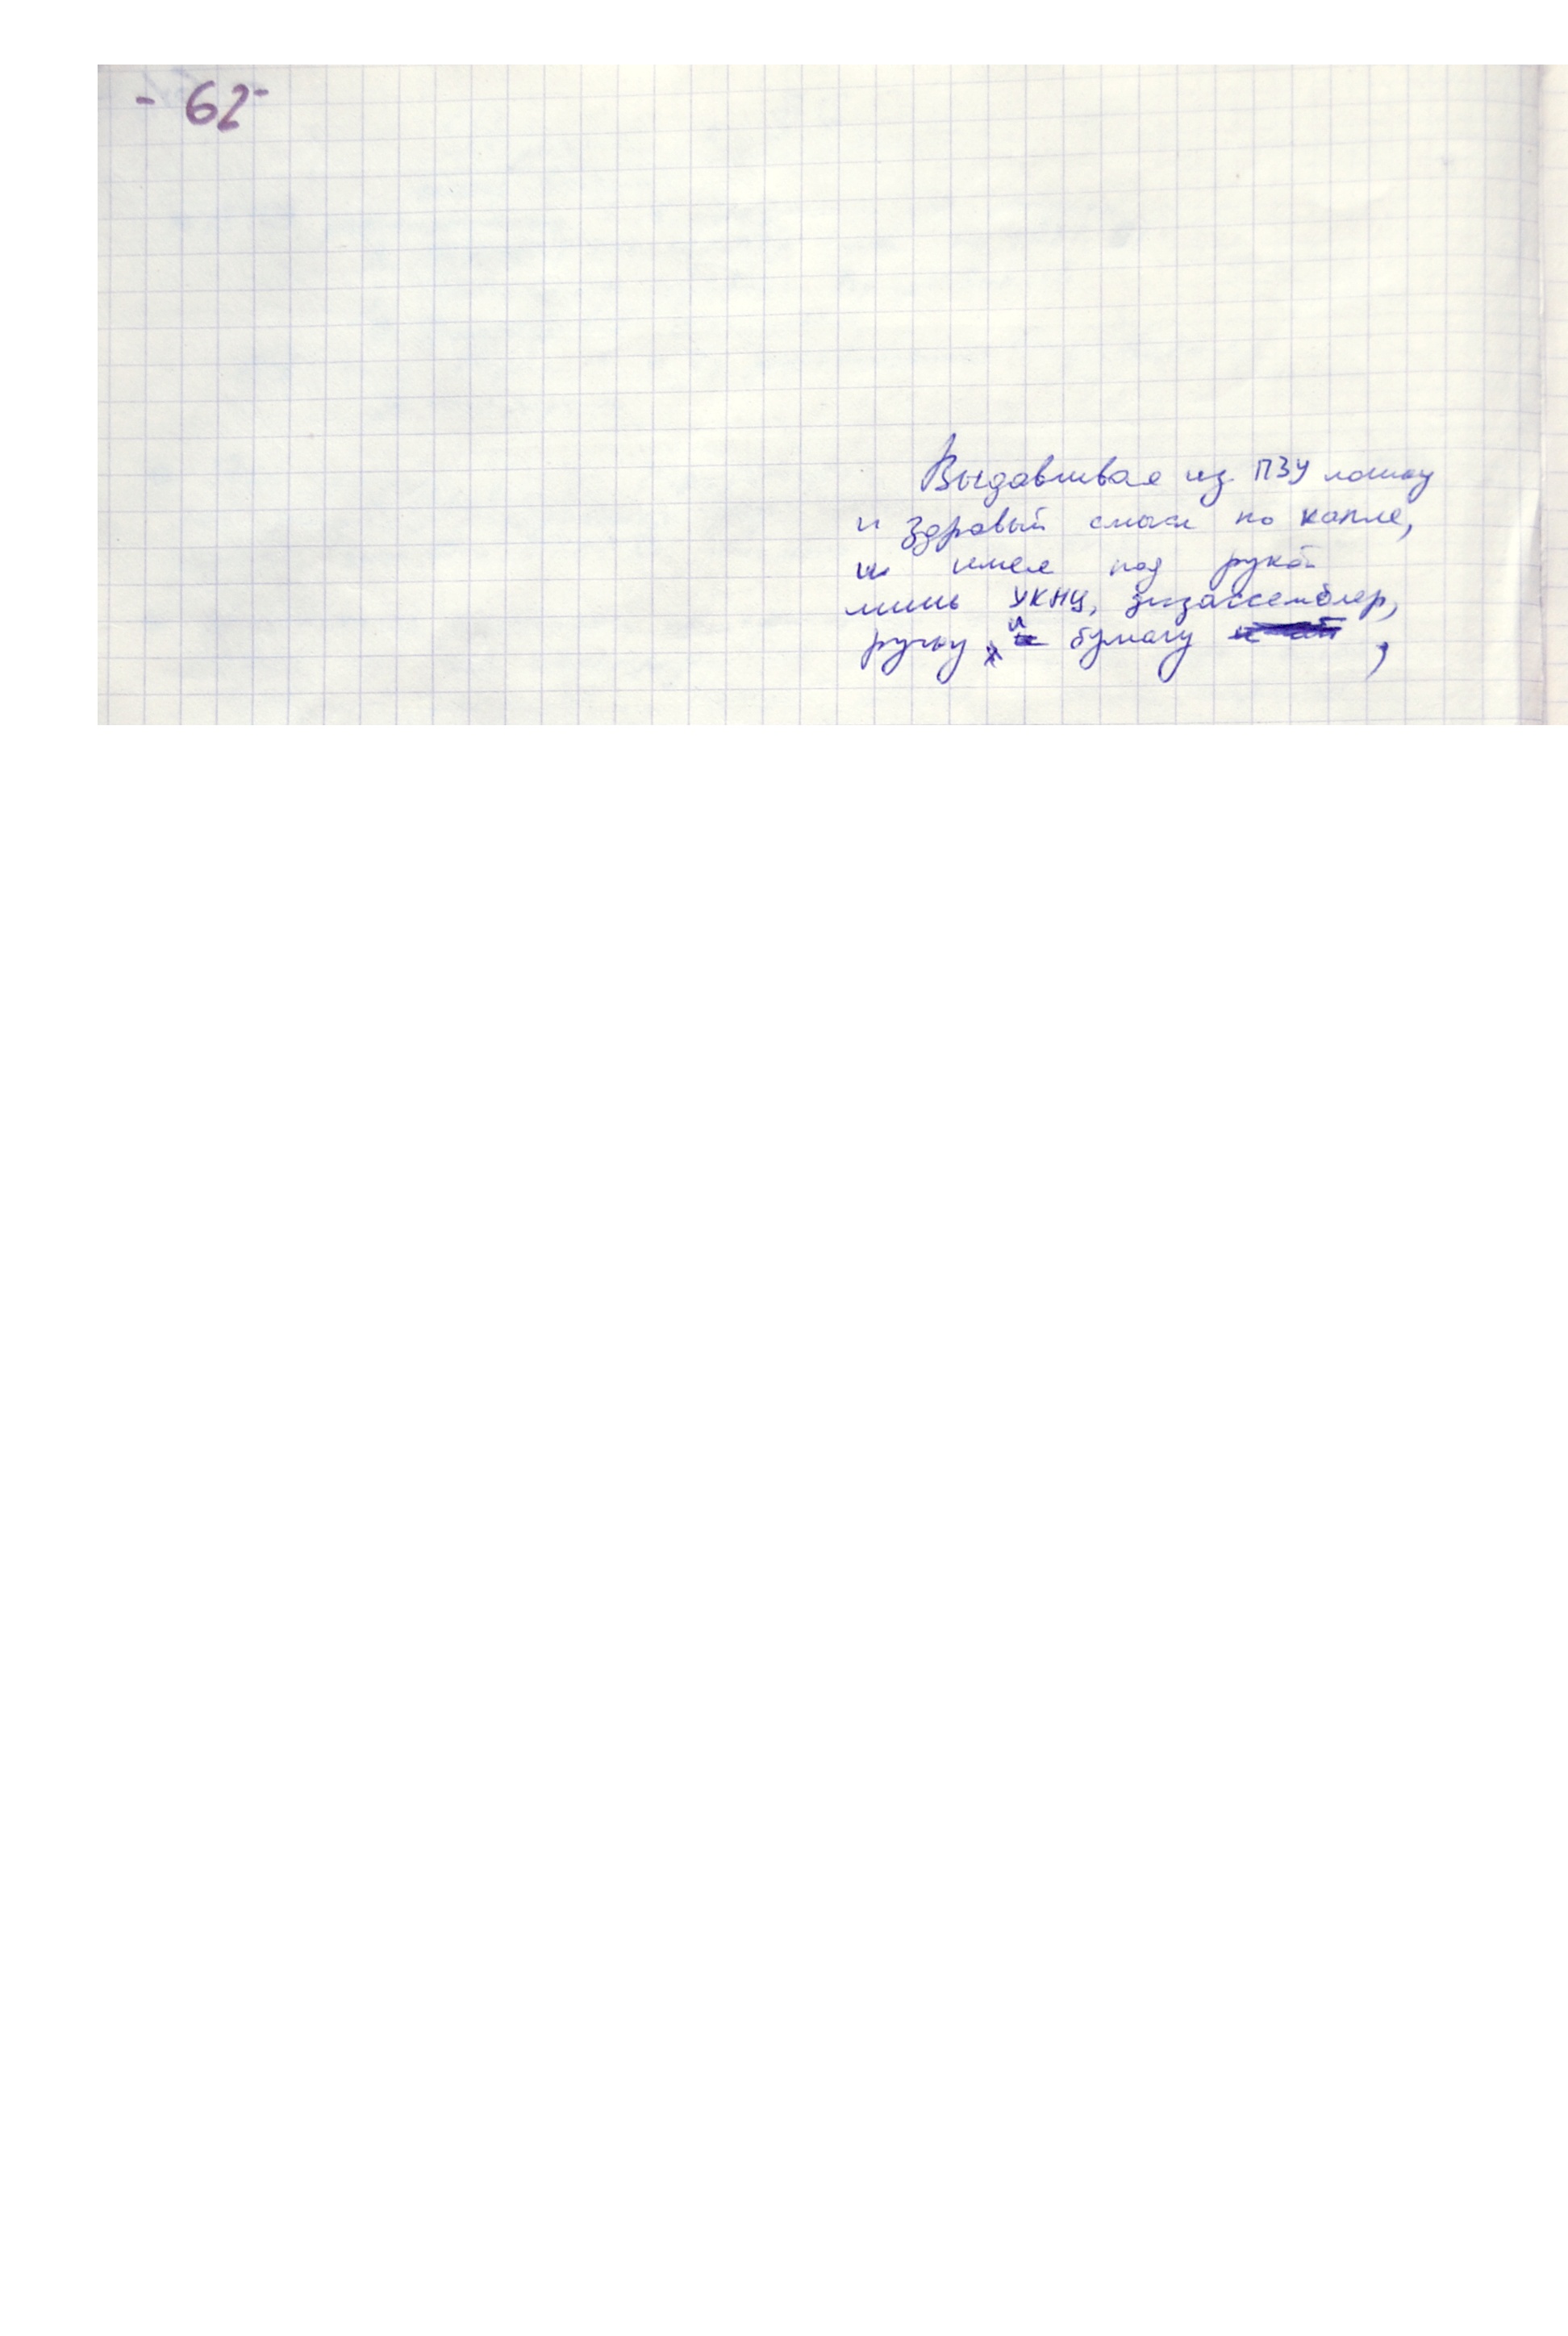 - 62 -
Выдавливая из ПЗУ логику
и здравый смысл по капле,
и имея под рукой
лишь УКНЦ, дизассемблер,
ручку и бумагу ,